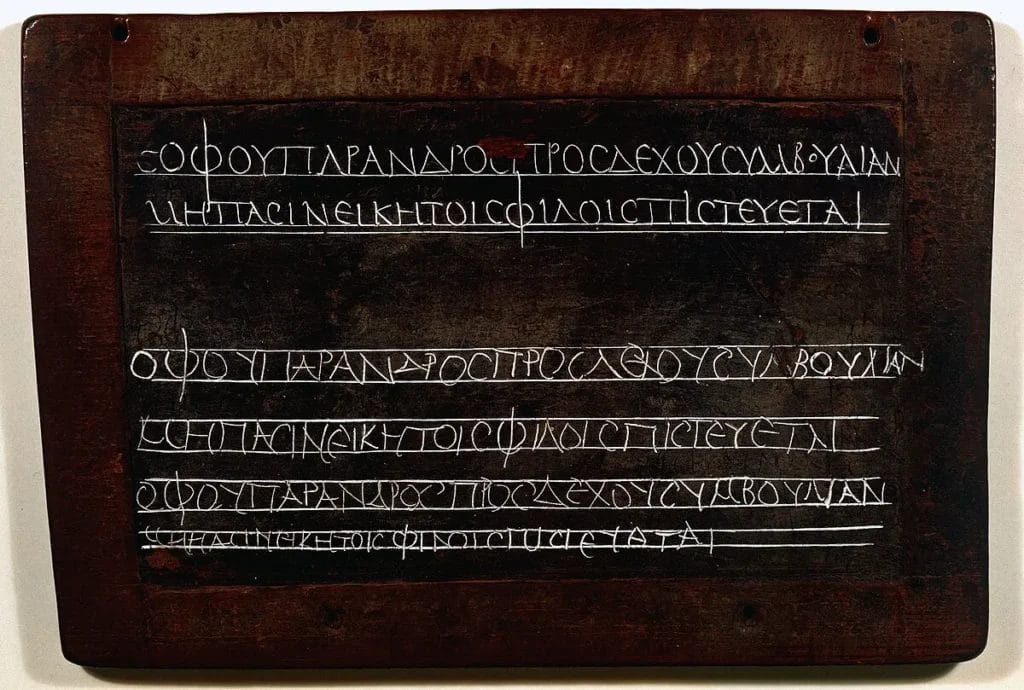 ϹΟΦΟΥΠΑΡΑΝΔΡΟϹΠΡΟϹΔΕΧΟΥϹΥΜΒΟΥΛΙΑΝ
ΜΗΠΑϹΙΝΕΙΚΗΤΟΙϹΦΙΛΟΙϹΠΙϹΤΕΥΕΤΑΙ
ΟΦΟΥΠΑΡΑΝΔΡΟϹΠΡΟϹΔΕΧΟΥϹΥΜΒΟΥΛΙΑΝ
ΜΗΠΑϹΙΝΕΙΚΗΤΟΙϹΦΙΛΟΙϹΠΙϹΤΕΥΕΤΑΙ
ΟΦΟΥΠΑΡΑΝΔΡΟϹΠΡΟϹΔΕΧΟΥϹΥΜΒΟΥΛΙΑΝ
ΜΗΠΑϹΙΝΕΙΚΗΤΟΙϹΦΙΛΟΙϹ